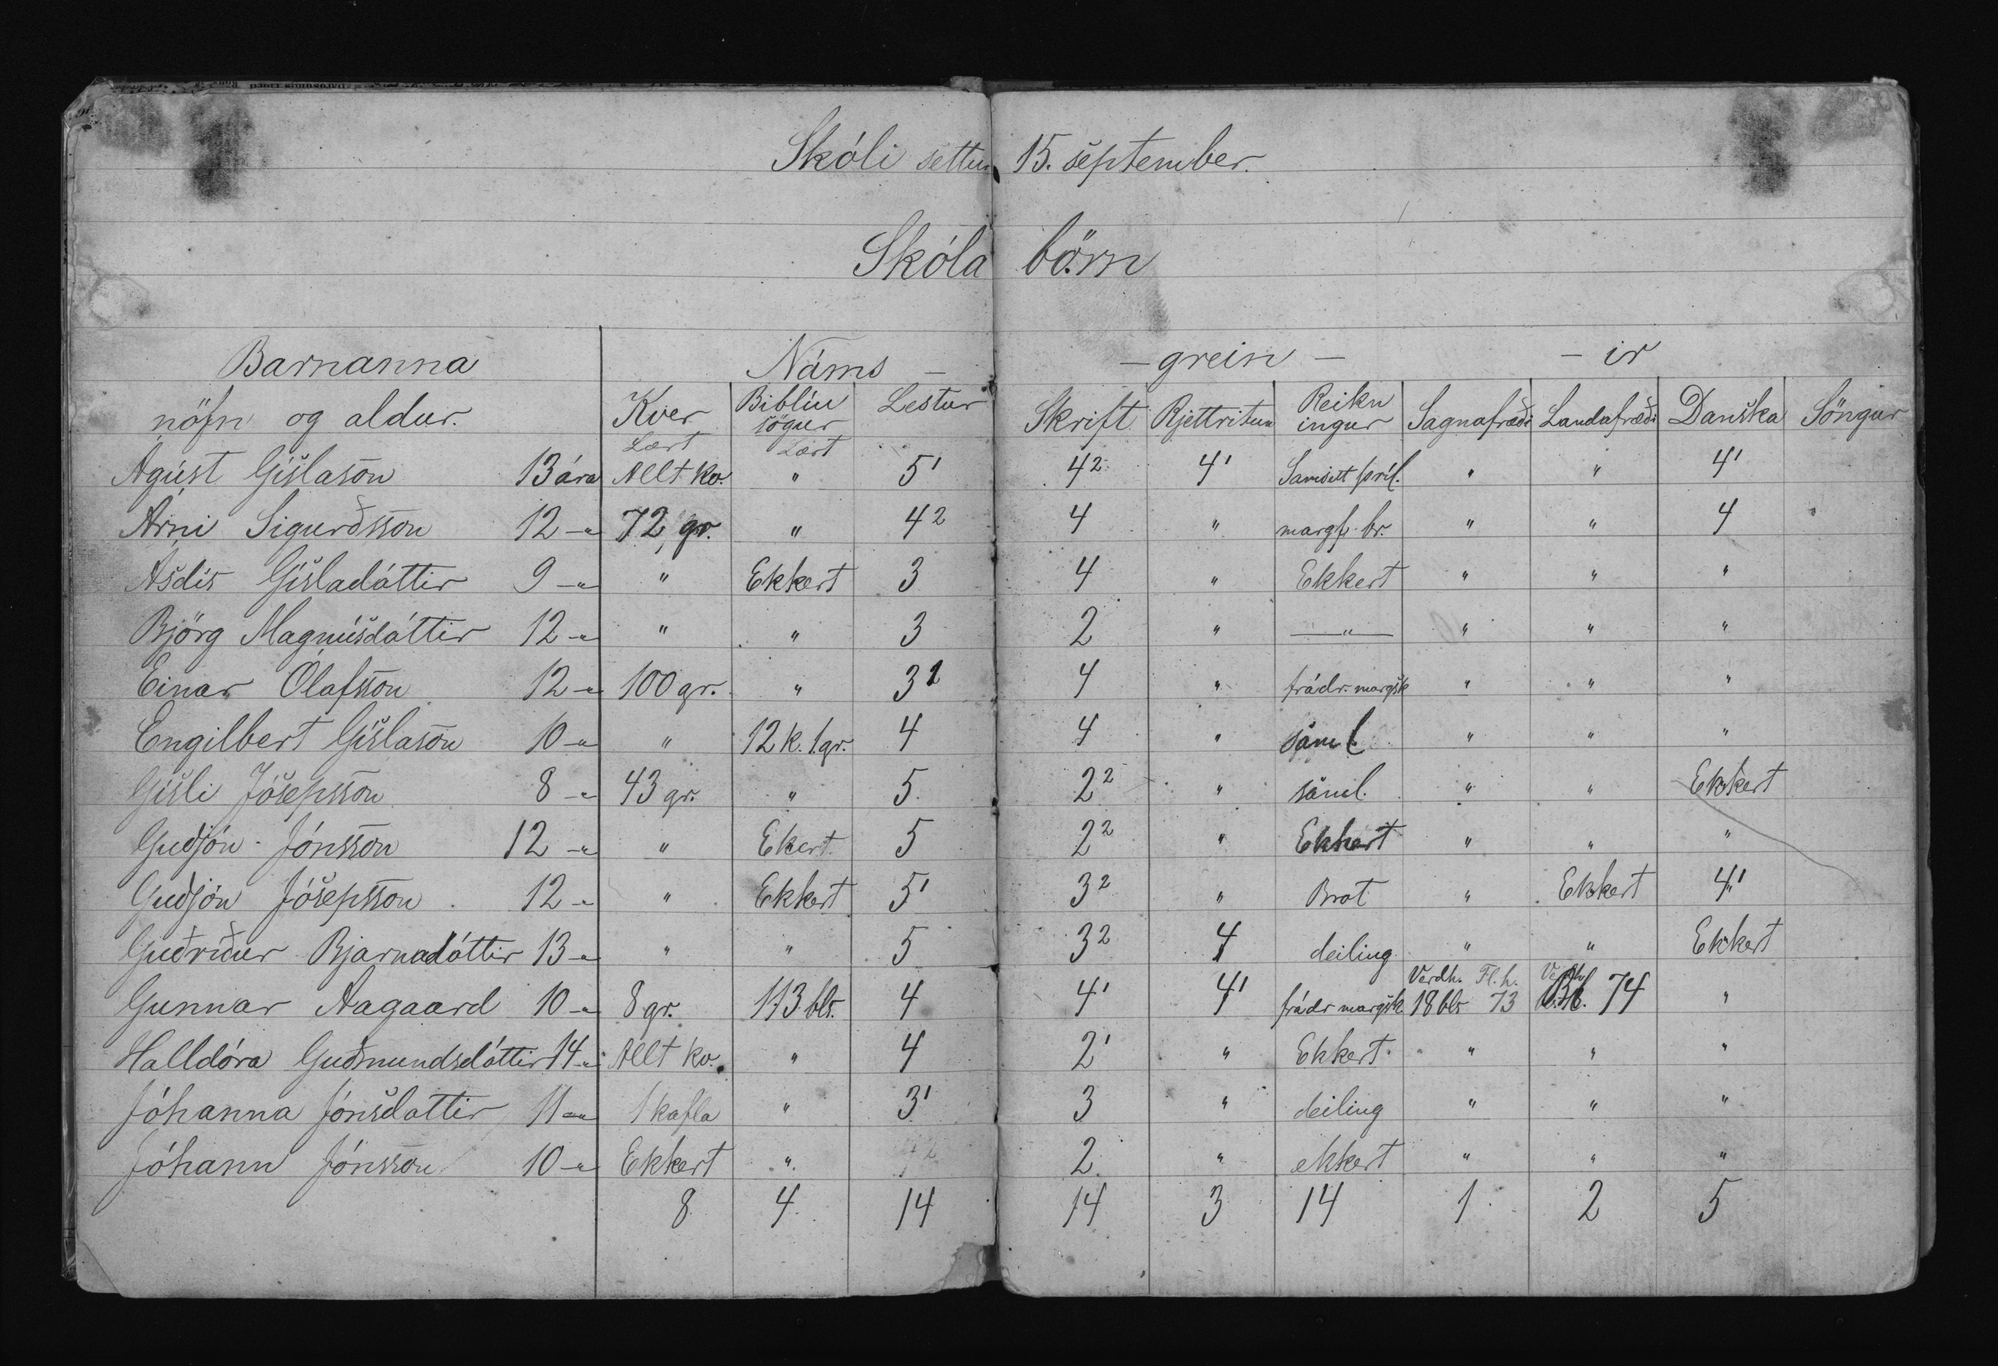 Skóli settur 15. september.
Skóla börn
Barnanna Náms – – grein – – ir
nöfn og aldur. Kver Biblíu sögur Lestur Skrift Rjettritun Reikn ingur Sagnafræði Landafræði Danska Söngur
Lært Lært
Ágúst Gíslason 13 ára Allt kv. " 5¹ 4² 4¹ Samsett þríl. " " 4¹
Árni Sigurðsson 12 –"– 72 gr. " 4² 4 " margf. br. " " 4 "
Ásdís Gísladóttir 9 –"– " Ekkert 3 4 " Ekkert " " "
Björg Magnúsdóttir 12 –"– " " 3 2 " —"— " " "
Einar Ólafsson 12 –"– 100 gr. " 3² 4 " frádr. margsk " " "
Engilbert Gíslason 10 –"– " 12 k. 1 gr. 4 4 " saml. " " "
Gísli Jósepsson 8 –"– 43 gr. " 5 2² " saml. " " Ekkert
Guðjón Jónsson 12 –"– " Ekert 5 2² " Ekkert " " "
Guðjón Jósepsson 12 –"– " Ekkert 5¹ 3² " Brot " Ekkert 4¹
Guðríður Bjarnadóttir 13 –"– " " 5 3² 4 deiling " " Ekkert
Verdh. Fl. h.
Gunnar Aagaard 10 –"– 8 gr. 173 bls. 4 4¹ 4¹ frádr margsk 18 bls 73 74 "
Halldóra Guðmundsdóttir 14 –"– Allt kv. " 4 2¹ " Ekkert " " "
Jóhanna Jónsdóttir 11 –"– 1 kafla " 3¹ 3 " deiling " " "
Jóhann Jónsson 10 –"– Ekkert " 2 " ekkert " " "
8 4 14 14 3 14 1 2 5